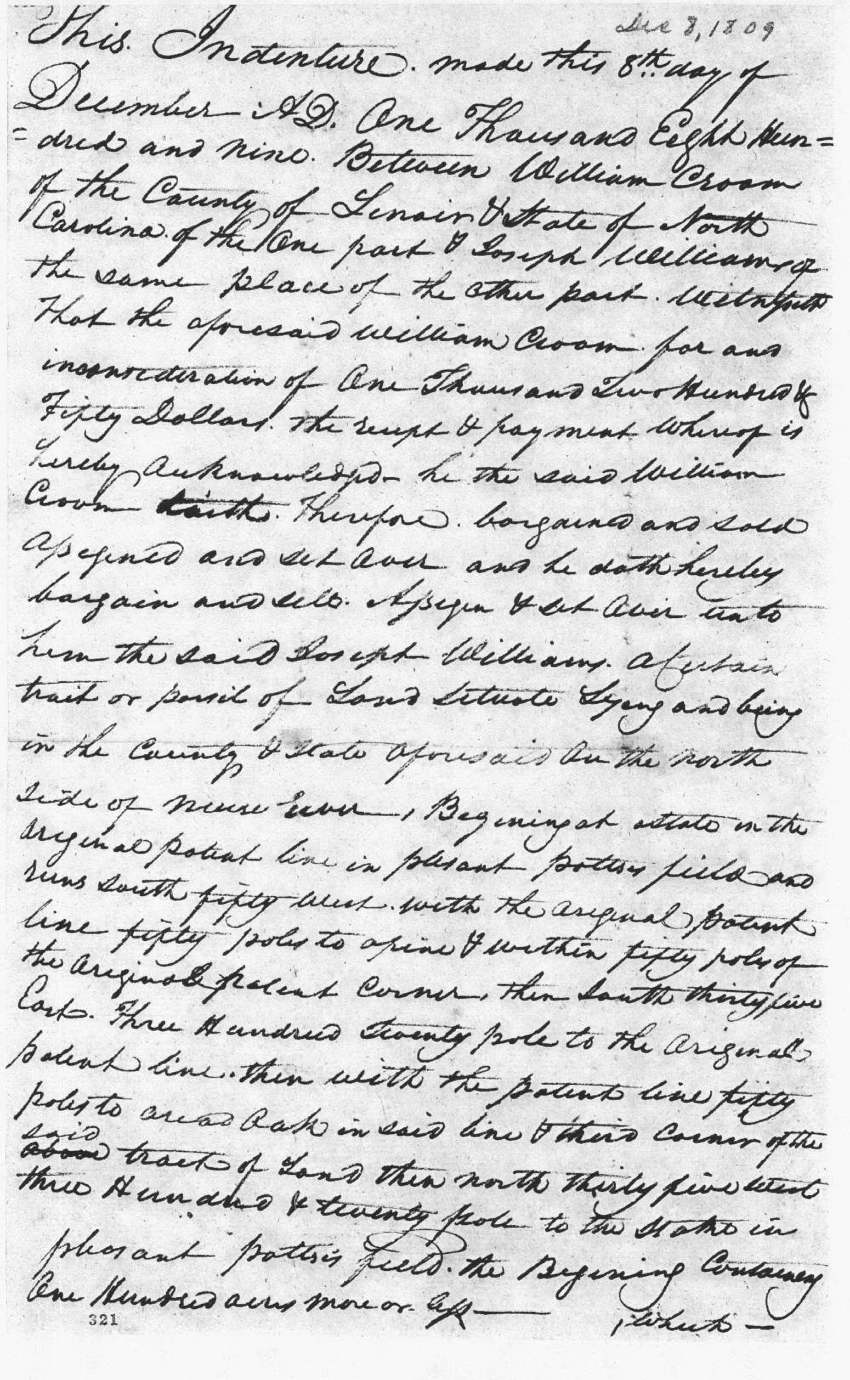 Dec 8, 1809
This Indenture. made this 8th day of
December A.D. One Thousand Eight Hun=
=dred and nine. Between William Croom
of the County of Lenoir & State of North
Carolina. of the One part & Joseph Williams of
the same place of the other part. Witnesseth
That the aforesaid William Croom for and
inconsideration of One Thousand Two Hundred &
Fifty Dollars. the receipt & payment whereof is
hereby Acknowledged he the said William
Croom hath. Therefore. bargained and sold
Assigened and set over and he doth hereby
bargain and sell. Assigen & set over unto
him the said Joseph Williams. a certain
tract or parsil of Land Situate Lying and being
in the County & State aforesaid On the north
side of Neuse River, Begining at a stake in the
original patent line in plesant potters field and
runs South fifty West. with the original patent
line fifty poles to a pine & within fifty poles of
the original patent Corner, then South thirty five
East. Three Hundred & twenty pole to the original
patent line. then with the patent line fifty
poles to a read Oak in said line & third Corner of the
said
above tract of Land then north thirty five west
three Hundred & twenty pole to the Stake in
pleasant potters field. the Begining Containing
One Hundred acres more or less
Which —
321